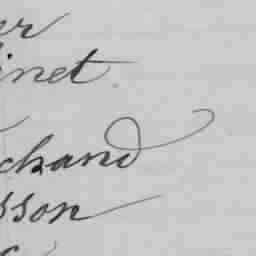 er
inet
chand
sson